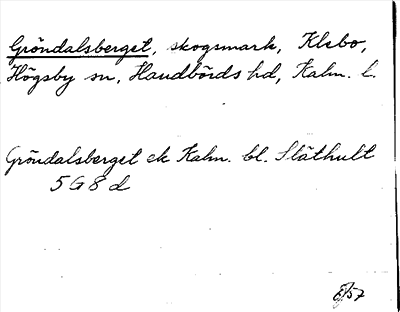 Gröndalsberget, skogsmark, Klebo,
Högsby sn, Handbörds hd, Kalm. l.
Gröndalsberget ek Kalm. bl. Släthult
5 G 8 d